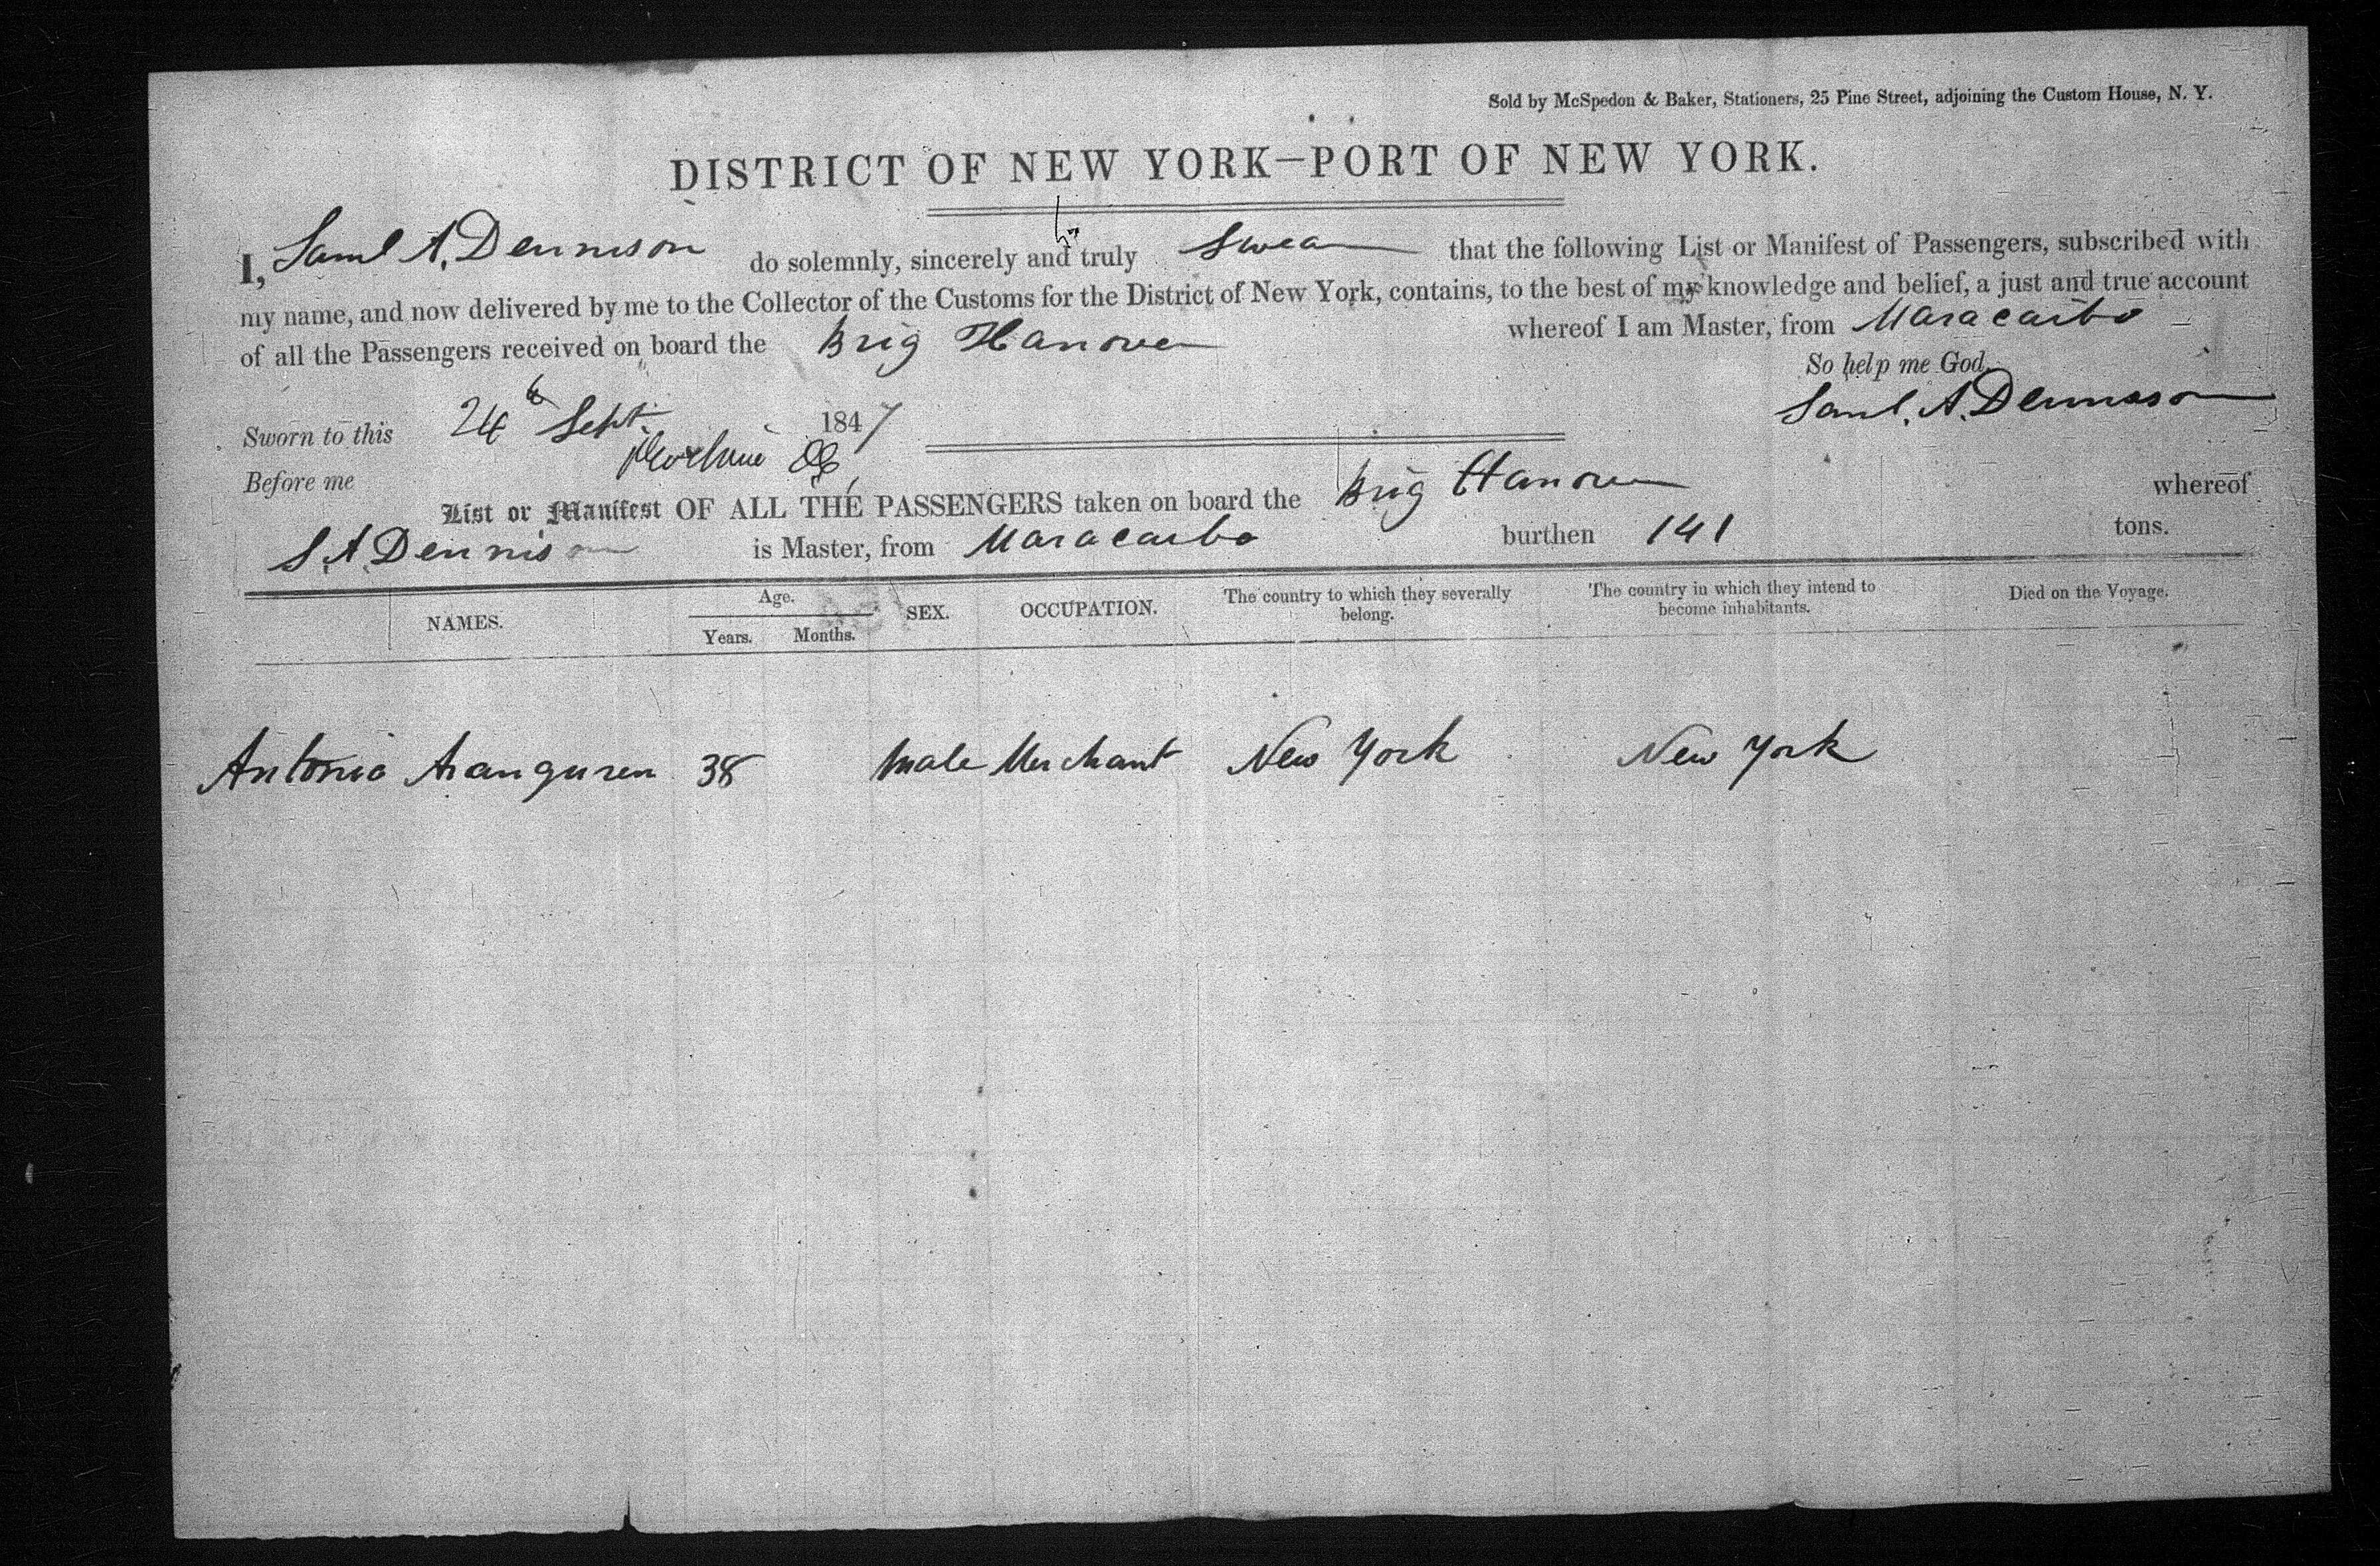 Sold by McSpedon & Baker, Stationers, 25 Pine Street, adjoining the Custom House, N. Y.
DISTRICT OF NEW YORK—PORT OF NEW YORK.
I, Saml A. Dennison do solemnly, sincerely and truly Swear that the following List or Manifest of Passengers, subscribed with
my name, and now delivered by me to the Collector of the Customs for the District of New York, contains, to the best of my knowledge and belief, a just and true account
of all the Passengers received on board the Brig Hanover whereof I am Master, from Maracaibo
So help me God.
Sworn to this 24 Sept. 1847 Saml. A. Dennison
Before me
List or Manifest OF ALL THE PASSENGERS taken on board the Brig Hanover whereof
S. A. Dennison is Master, from Maracaibo burthen 141 tons.
NAMES. Age. Years. Months. SEX. OCCUPATION. The country to which they severally belong. The country in which they intend to become inhabitants. Died on the Voyage.
Antonio Aranguren 38 Male Merchant New York New York